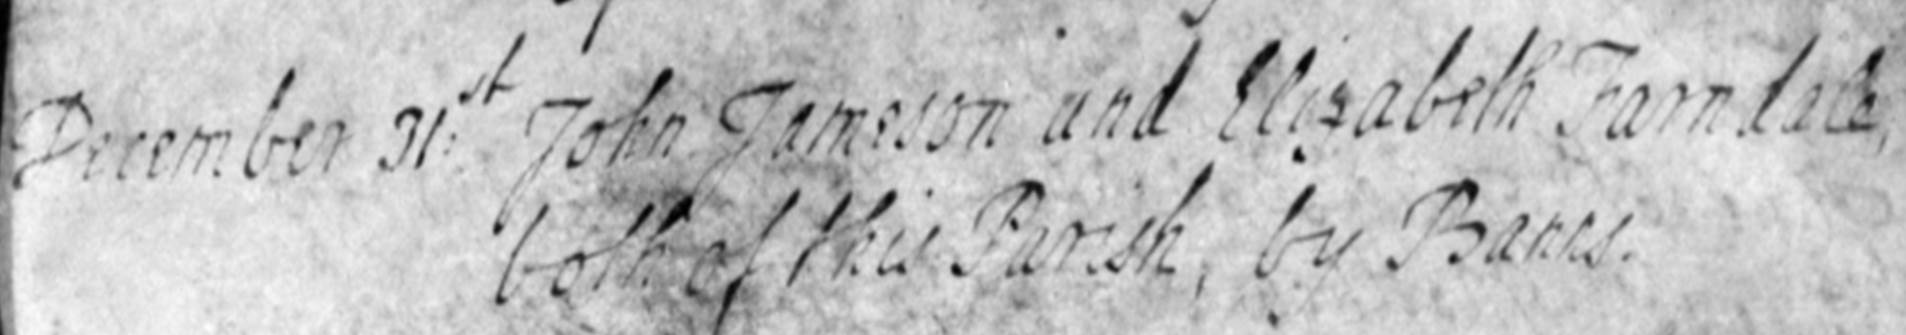 December 31.st John Jameson and Elizabeth Farndale,
both of this Parish, by Banns.